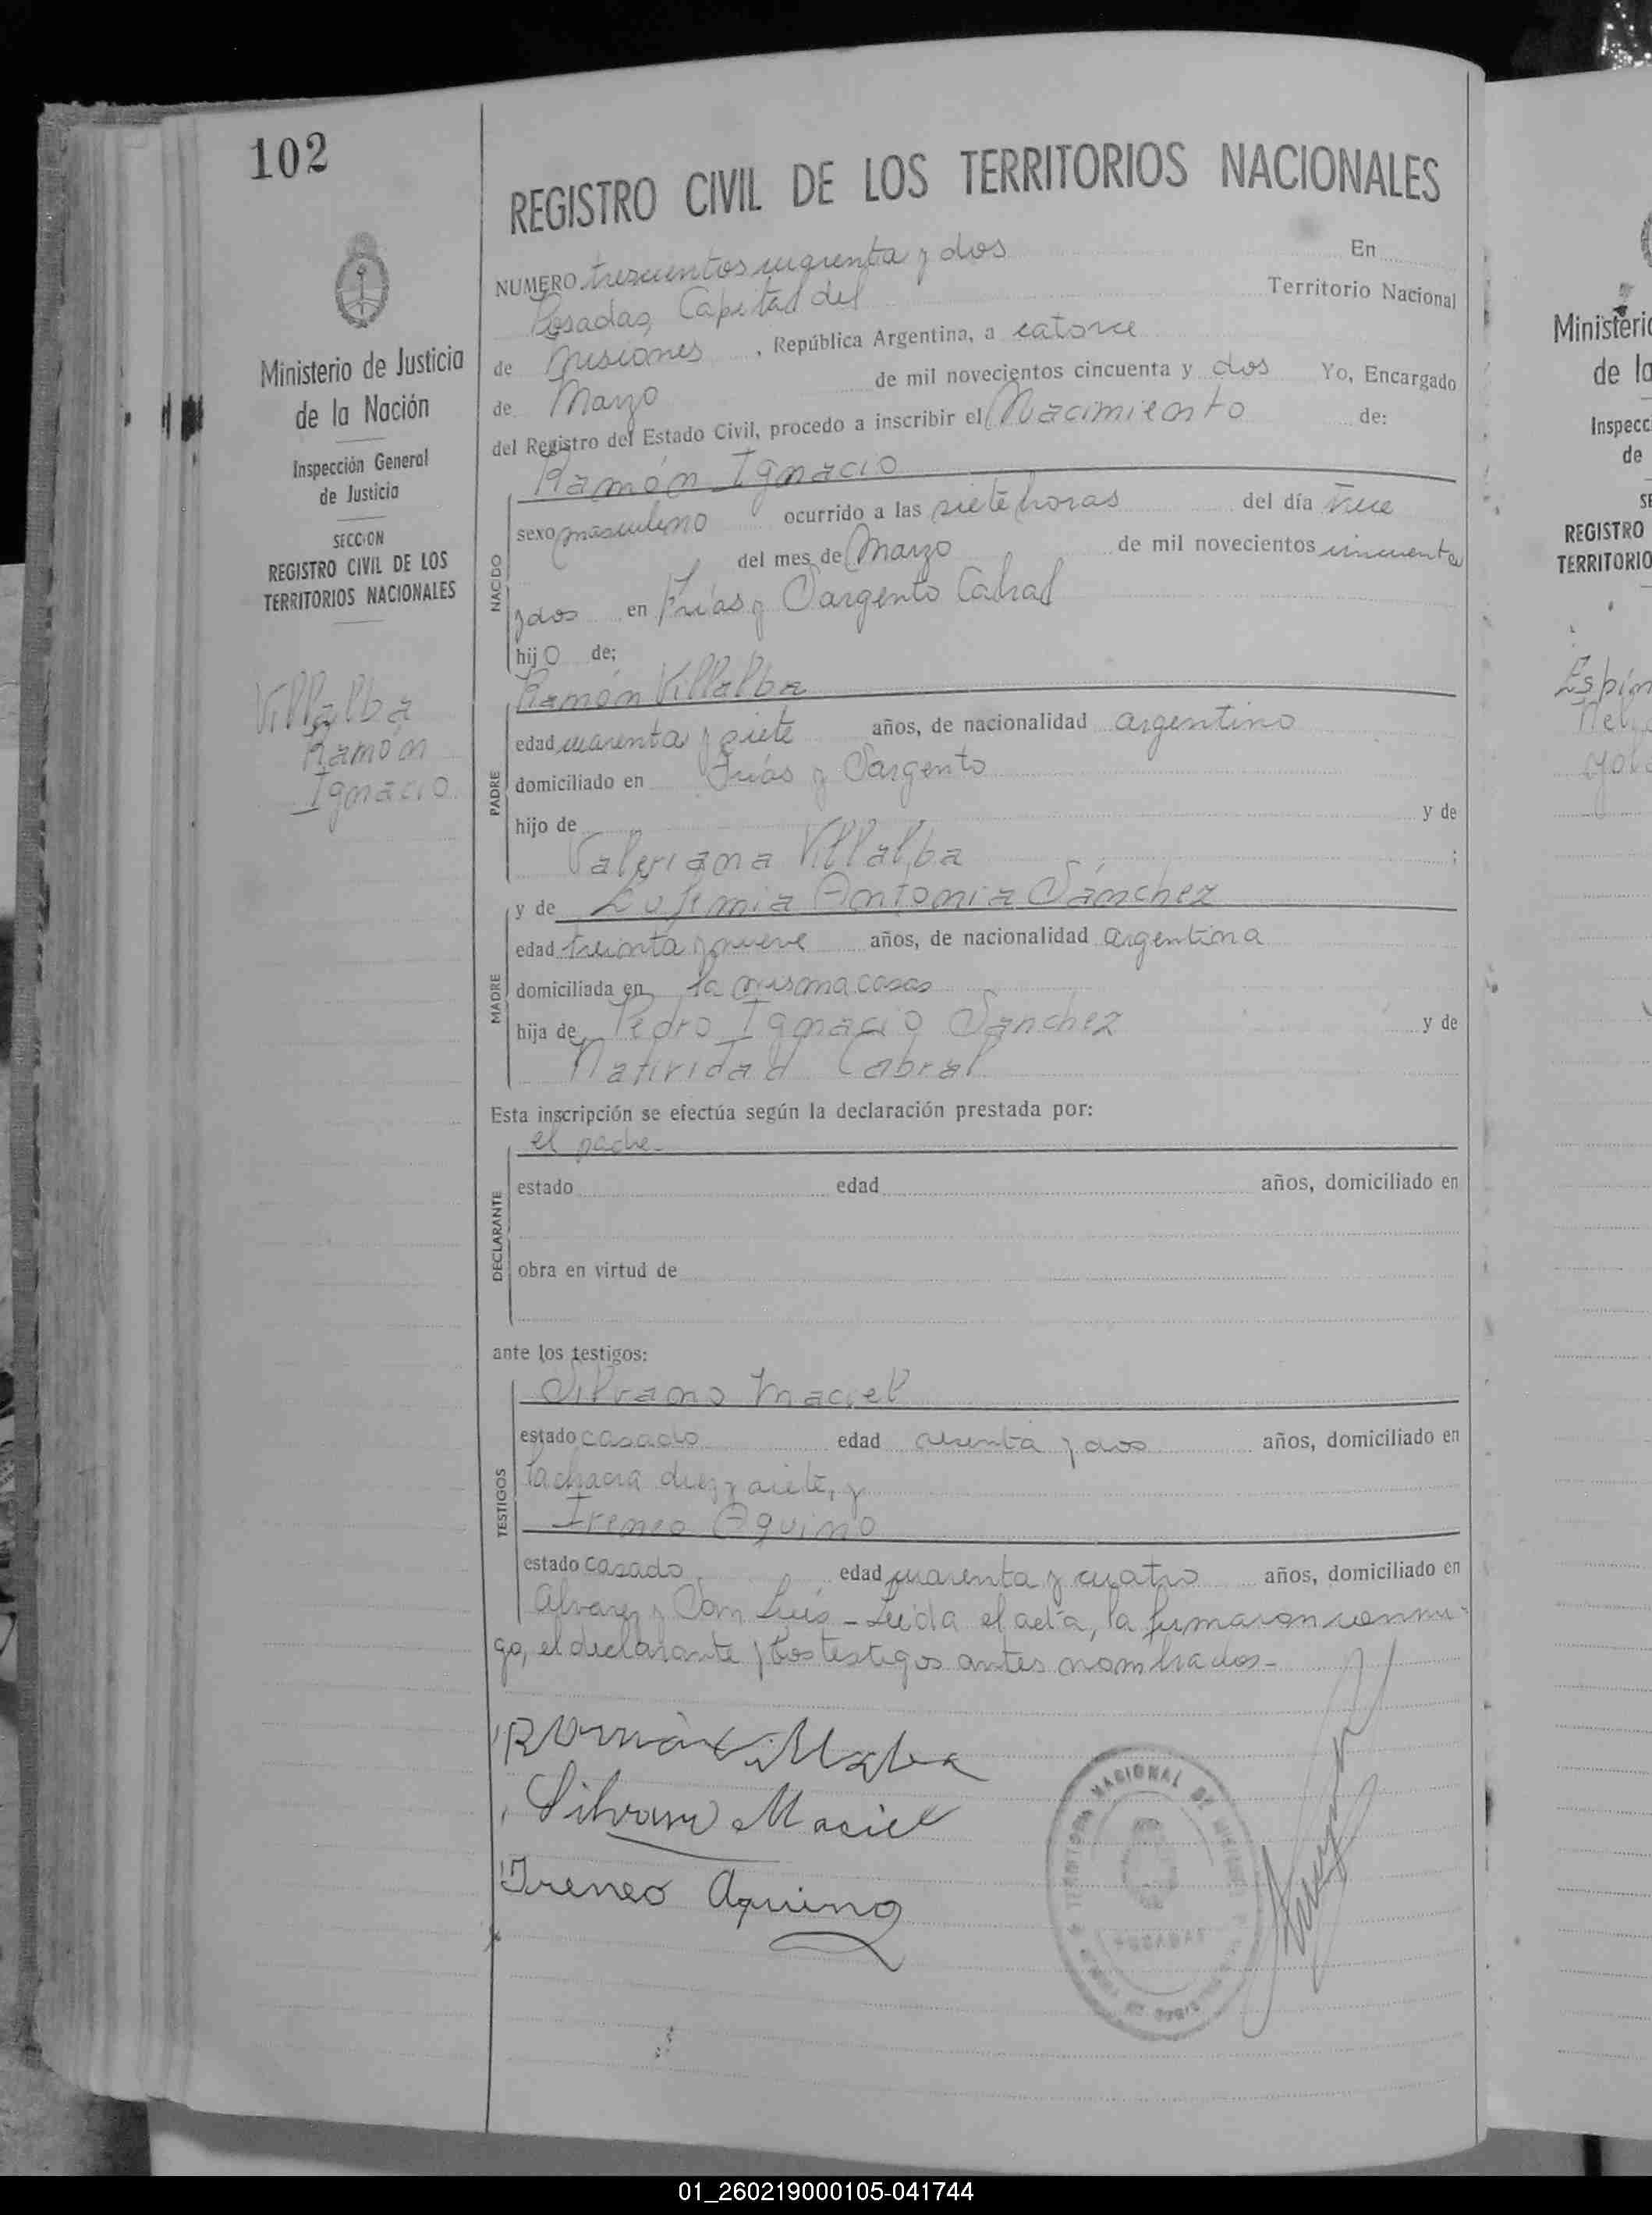 102
REGISTRO CIVIL DE LOS TERRITORIOS NACIONALES
Ministerio de Justicia
de la Nación
Inspección General
de Justicia
SECCION
REGISTRO CIVIL DE LOS
TERRITORIOS NACIONALES
Villalba
Ramón
Ignacio
NUMERO trescientos cuarenta y dos En
Posadas, Capital del Territorio Nacional
de Misiones, República Argentina, a catorce
de Marzo de mil novecientos cincuenta y dos Yo, Encargado
del Registro del Estado Civil, procedo a inscribir el Nacimiento de:
NACIDO
Ramón Ignacio
sexo masculino ocurrido a las siete horas del día trece
del mes de Marzo de mil novecientos cincuenta
y dos en Frías y Sargento Cabral
hijo de:
PADRE
Ramón Villalba
edad cuarenta y siete años, de nacionalidad argentino
domiciliado en Frías y Sargento
hijo de y de
Valeriana Villalba ;
MADRE
y de Eufemia Antonia Sánchez
edad treinta y nueve años, de nacionalidad argentina
domiciliada en la misma casa
hija de Pedro Ignacio Sanchez y de
Natividad Cabral
Esta inscripción se efectúa según la declaración prestada por:
DECLARANTE
el padre.
estado edad años, domiciliado en
obra en virtud de
ante los testigos:
TESTIGOS
Silvano Maciel
estado casado edad sesenta y dos años, domiciliado en
la chacra diez y siete, y
Ireneo Aquino
estado casado edad cuarenta y cuatro años, domiciliado en
Alvarez y San Luis - Leida el acta, la firmaron conmi-
go, el declarante y los testigos antes nombrados-
Ramón Villalba
Silvano Maciel
Ireneo Aquino
TERRITORIO NACIONAL DE MISIONES
POSADAS
Ministerio
de la
Inspecc
de
SE
REGISTRO
TERRITORIO
Espín
Nel
Yol
01_260219000105-041744